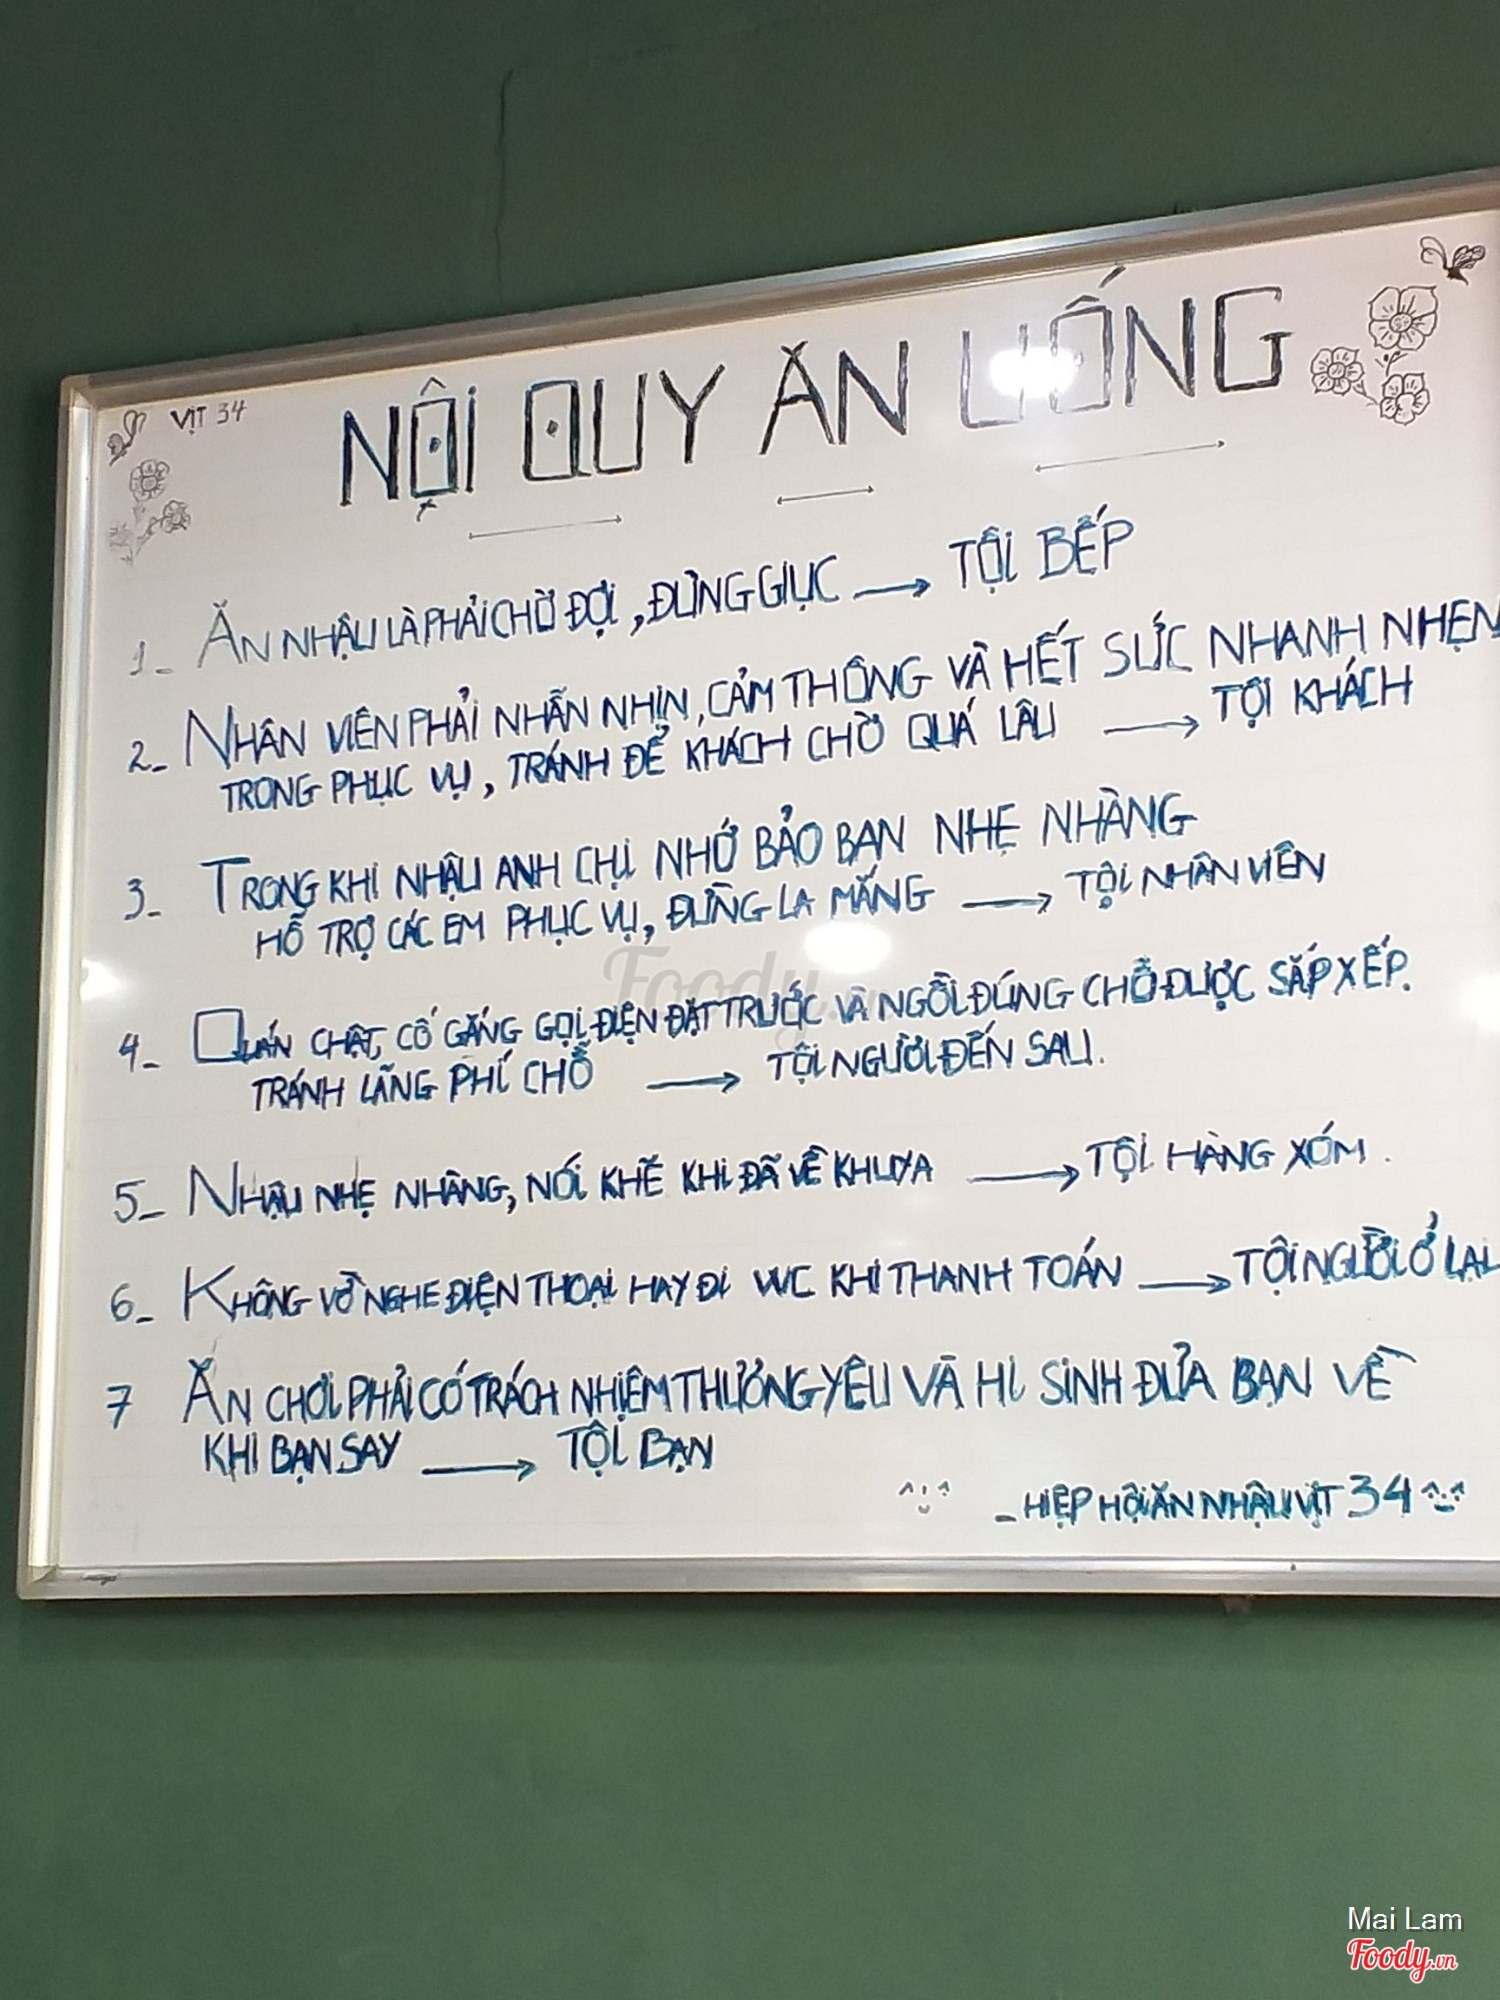 VỊT 34
NỘI QUY ĂN UỐNG
1_ ĂN NHẬU LÀ PHẢI CHỜ ĐỢI, ĐỪNG GIỤC → TỘI BẾP
2_ NHÂN VIÊN PHẢI NHẪN NHỊN, CẢM THÔNG VÀ HẾT SỨC NHANH NHẸN
TRONG PHỤC VỤ, TRÁNH ĐỂ KHÁCH CHỜ QUÁ LÂU → TỘI KHÁCH
3_ TRONG KHI NHẬU ANH CHỊ NHỚ BẢO BAN NHẸ NHÀNG
HỖ TRỢ CÁC EM PHỤC VỤ, ĐỪNG LA MẮNG → TỘI NHÂN VIÊN
4_ QUÁN CHẬT, CỐ GẮNG GỌI ĐIỆN ĐẶT TRƯỚC VÀ NGỒI ĐÚNG CHỖ ĐƯỢC SẮP XẾP.
TRÁNH LÃNG PHÍ CHỖ → TỘI NGƯỜI ĐẾN SAU.
5_ NHẬU NHẸ NHÀNG, NÓI KHẼ KHI ĐÃ VỀ KHUYA → TỘI HÀNG XÓM.
6_ KHÔNG VỜ NGHE ĐIỆN THOẠI HAY ĐI WC KHI THANH TOÁN → TỘI NGƯỜI Ở LẠI
7 ĂN CHƠI PHẢI CÓ TRÁCH NHIỆM THƯƠNG YÊU VÀ HI SINH ĐƯA BẠN VỀ
KHI BẠN SAY → TỘI BẠN
_ HIỆP HỘI ĂN NHẬU VỊT 34
Foody.vn
Mai Lam
Foody.vn